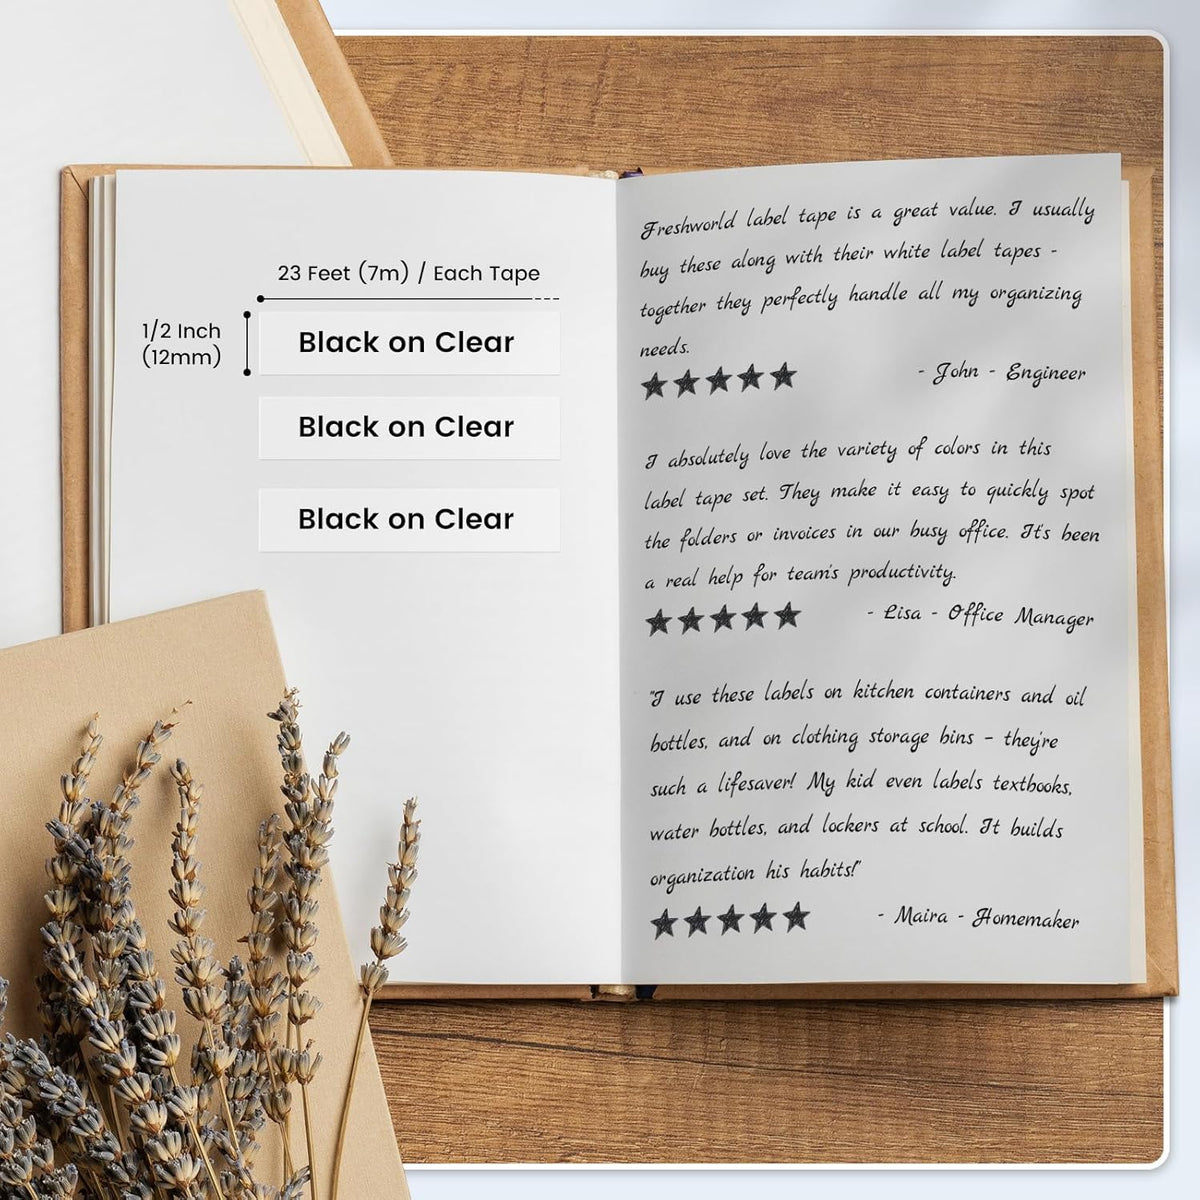 23 Feet (7m) / Each Tape
1/2 Inch
(12mm)
Black on Clear
Black on Clear
Black on Clear
Freshworld label tape is a great value. I usually
buy these along with their white label tapes -
together they perfectly handle all my organizing
needs.
- John - Engineer
I absolutely love the variety of colors in this
label tape set. They make it easy to quickly spot
the folders or invoices in our busy office. It's been
a real help for team's productivity.
- Lisa - Office Manager
"I use these labels on kitchen containers and oil
bottles, and on clothing storage bins - they're
such a lifesaver! My kid even labels textbooks,
water bottles, and lockers at school. It builds
organization his habits!"
- Maira - Homemaker